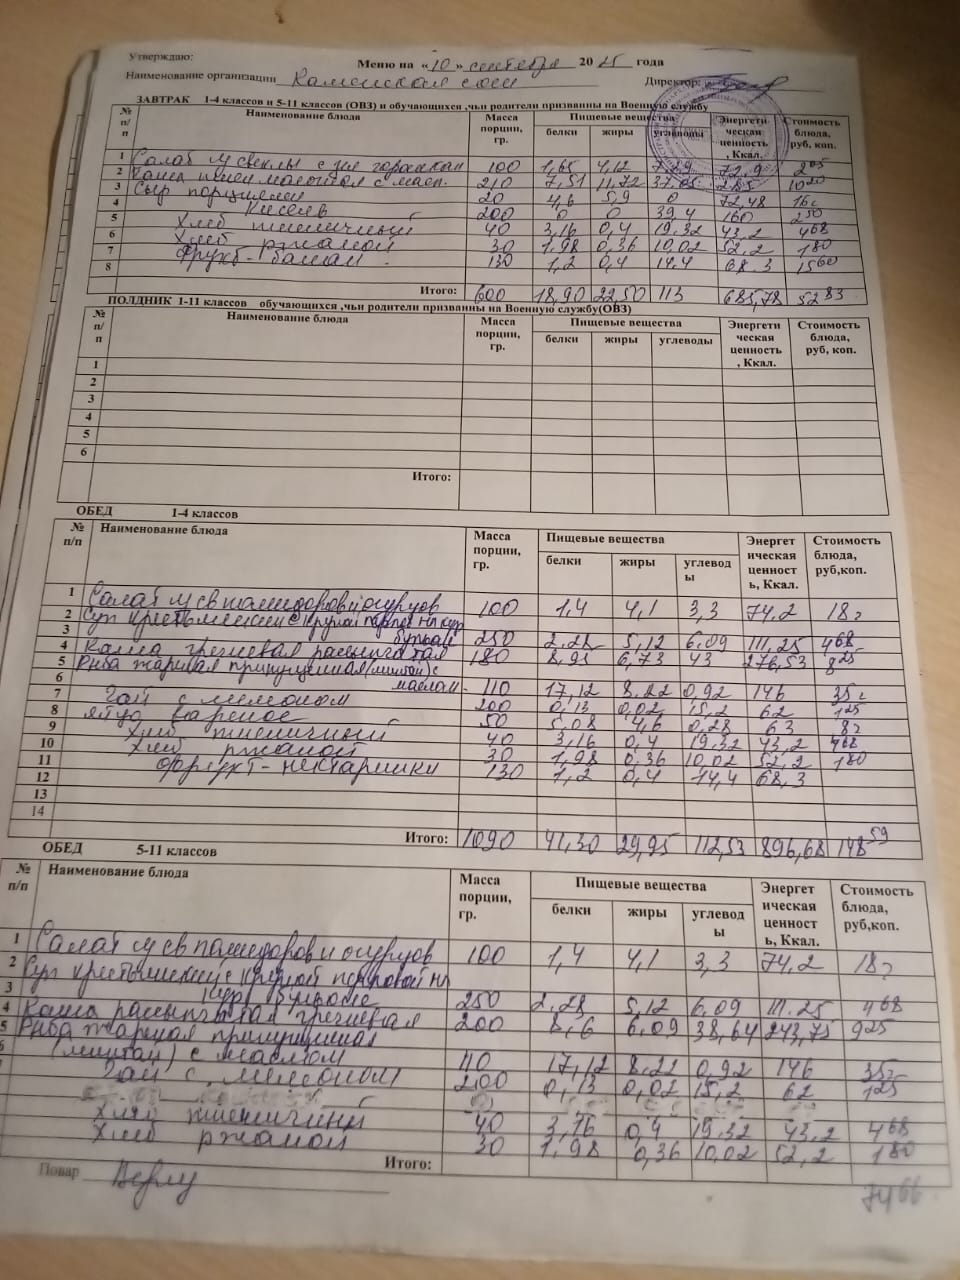 Утверждаю:
Меню на «10» сентября 2025 года
Наименование организации Каменская сош Директор:
ЗАВТРАК 1-4 классов и 5-11 классов (ОВЗ) и обучающихся ,чьи родители призванны на Военную службу
№ п/п Наименование блюда Масса порции, гр. Пищевые вещества Энергетическая ценность, Ккал. Стоимость блюда, руб, коп.
белки жиры углеводы
1 Салат из свеклы с зел горошком 100 1,65 4,12 7,29 72,9
2 Каша пшен молочная с масл. 210 7,51 11,72 37,05 285 10
3 Сыр порциями 20 4,6 5,9 0 72,48 16
4 Кисель 200 0 0 39,4 160 2 50
5 Хлеб пшеничный 40 3,16 0,4 19,32 43,2 4 68
6 Хлеб ржаной 30 1,98 0,36 10,02 52,2 1 80
7 Фрукт- банан 130 1,2 0,4 14,4 68.3 15 60
8
Итого: 600 18,90 22,50 113 685,78 52 83
ПОЛДНИК 1-11 классов обучающихся ,чьи родители призванны на Военную службу(ОВЗ)
№ п/п Наименование блюда Масса порции, гр. Пищевые вещества Энергетическая ценность, Ккал. Стоимость блюда, руб, коп.
белки жиры углеводы
1
2
3
4
5
6
Итого:
ОБЕД 1-4 классов
№ п/п Наименование блюда Масса порции, гр. Пищевые вещества Энергетическая ценность, Ккал. Стоимость блюда, руб,коп.
белки жиры углеводы
1 Салат из св помидоров и огурцов 100 1,4 4,1 3,3 74,2 18
2 Суп крестьянский с крупой на кур
3 бульоне 250 2,28 5,12 6,09 111,25 4 68
4 Каша гречневая рассыпчатая 180 8,95 6,73 43 276,53 8 25
5 Рыба жареная припущенная (минтай) с
6 маслом 110 17,12 8.22 0,92 146 35
7 Чай с лимоном 200 0,13 0,02 15,2 62 1 25
8 Яйцо вареное 50 5,08 4,6 0,28 63 8
9 Хлеб пшеничный 40 3,16 0,4 19,32 43,2 4 68
10 Хлеб ржаной 30 1,98 0,36 10,02 52,2 1 80
11 Фрукт- нектарины 130 1,2 0,4 14,4 68,3
12
13
14
Итого: 1090 41,30 29,95 112,53 896,68 148 59
ОБЕД 5-11 классов
№ п/п Наименование блюда Масса порции, гр. Пищевые вещества Энергетическая ценность, Ккал. Стоимость блюда, руб,коп.
белки жиры углеводы
1 Салат из св помидоров и огурцов 100 1,4 4,1 3,3 74,2 18
2 Суп крестьянский с крупой перловой на
3 кур бульоне 250 2.28 5,12 6,09 111.25 4 68
4 Каша рассыпчатая гречневая 200 8,6 6,09 38,64 243,75 9 25
5 Рыба жареная припущенная
6 (минтай) с маслом 110 17,12 8,22 0,92 146 35
Чай с лимоном 200 0,13 0,02 15,2 62 1 25
Хлеб пшеничный 40 3,16 0,4 19,32 43,2 4 68
Хлеб ржаной 30 1,98 0,36 10,02 52,2 1 80
Итого:
74 66
Повар